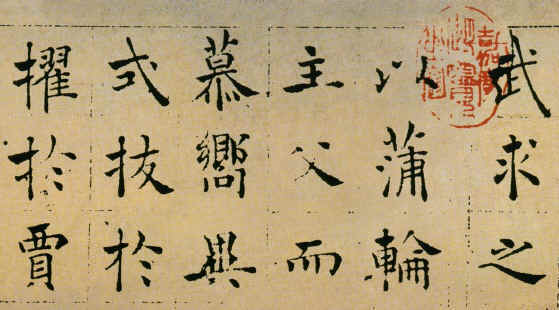 武求之
以蒲輪
主父而
慕嚮異
式拔於
擢於賈